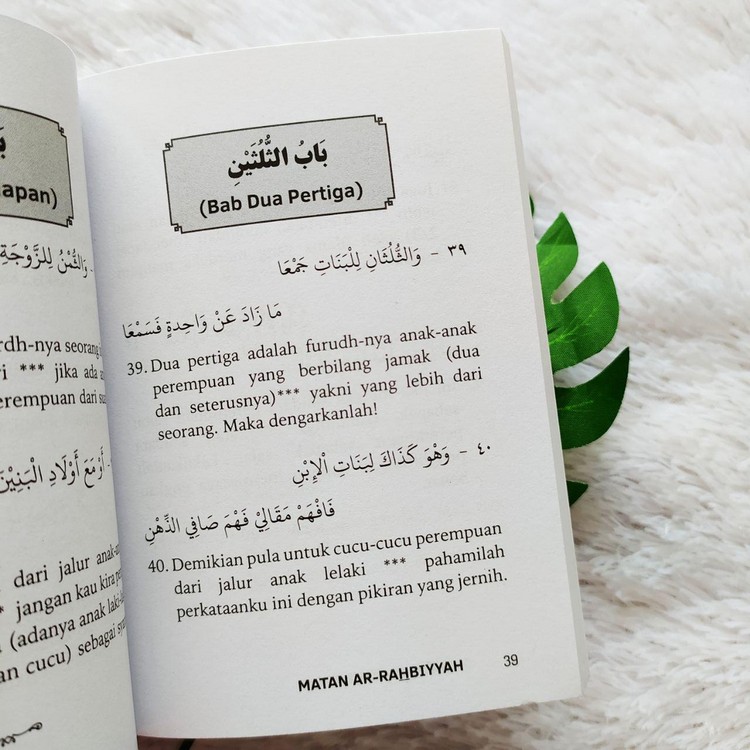 apan)
وَالثُّمْنُ لِلزَّوْجَةِ
rdh-nya seorang
ri *** jika ada
erempuan dari
أَوْ مَعَ أَوْلَادِ الْبَنِيْنَ
dari jalur anak-
* jangan kau kira
(adanya anak laki-
an cucu) sebagai
بَابُ الثُّلُثَيْنِ
(Bab Dua Pertiga)
٣٩ - وَالثُّلُثَانِ لِلْبَنَاتِ جَمْعَا
مَا زَادَ عَنْ وَاحِدَةٍ فَسَمْعَا
39. Dua pertiga adalah furudh-nya anak-anak
perempuan yang berbilang jamak (dua
dan seterusnya)*** yakni yang lebih dari
seorang. Maka dengarkanlah!
٤٠ - وَهْوَ كَذَاكَ لِبَنَاتِ الْاِبْنِ
فَافْهَمْ مَقَالِيْ فَهْمَ صَافِي الذِّهْنِ
40. Demikian pula untuk cucu-cucu perempuan
dari jalur anak lelaki *** pahamilah
perkataanku ini dengan pikiran yang jernih.
MATAN AR-RAHBIYYAH 39